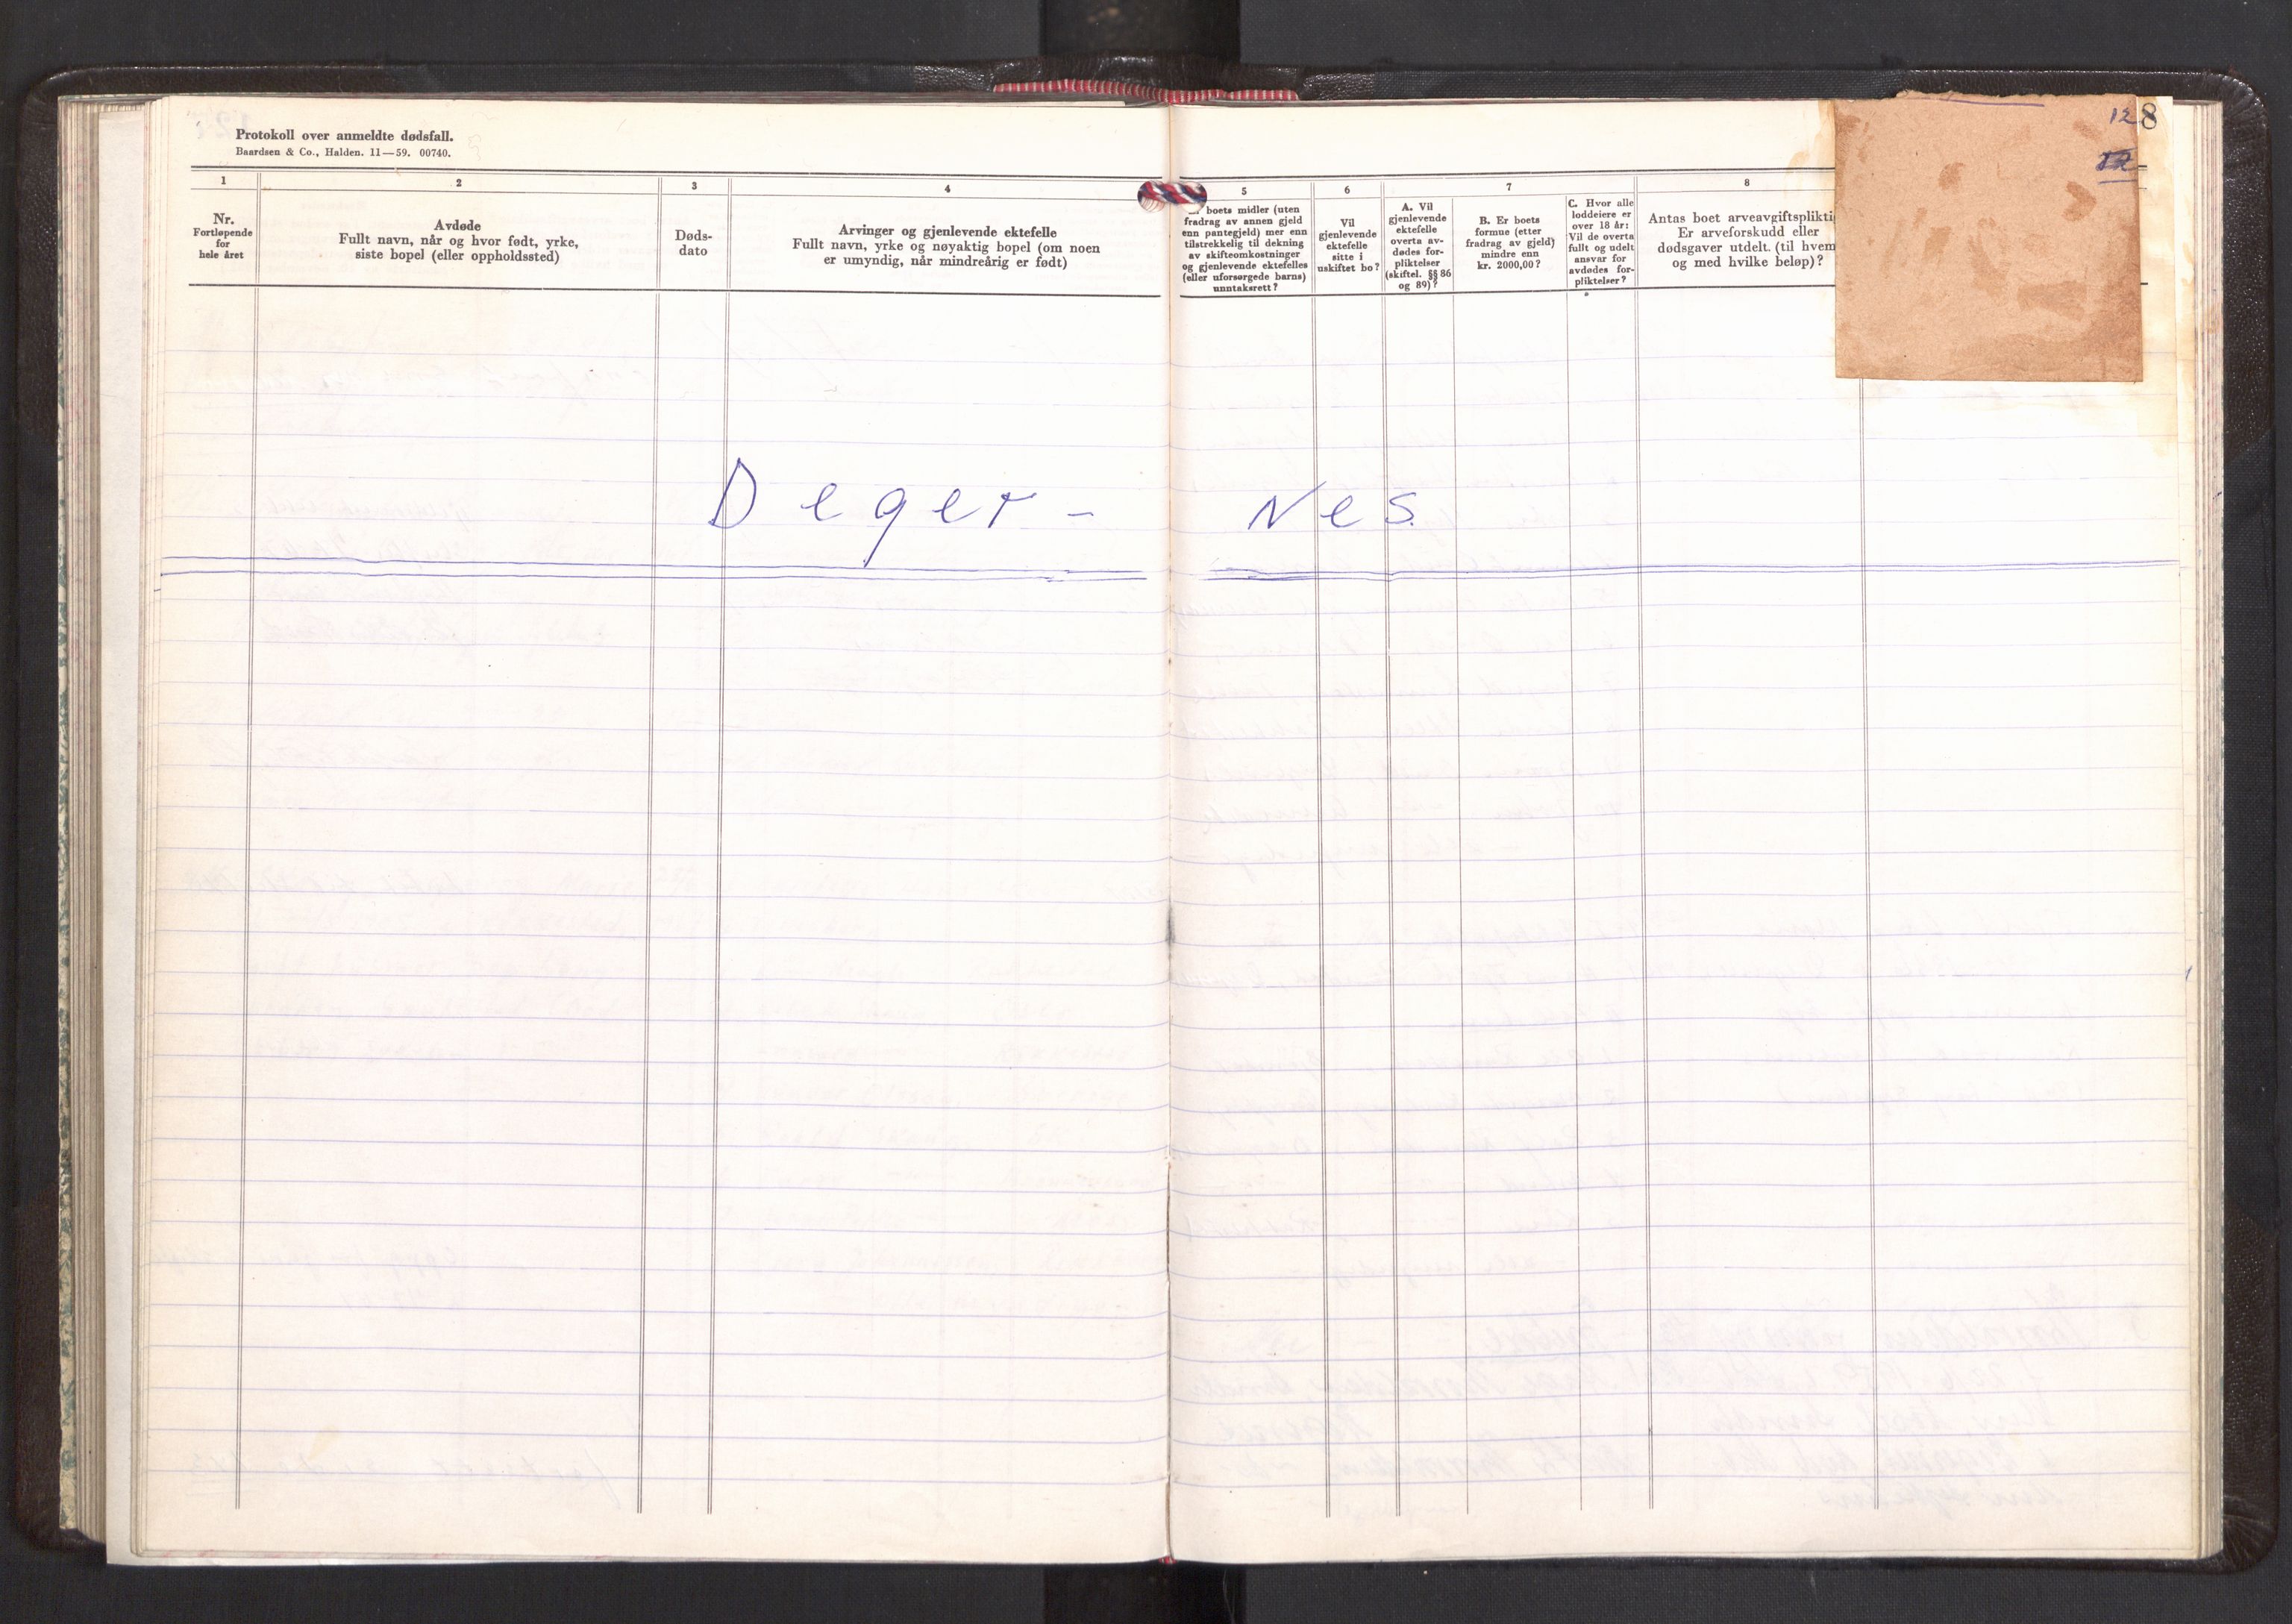 Protokoll over anmeldte dødsfall.
Baardsen & Co., Halden. 11—59. 00740.
128
12
1
Nr.
Fortløpende
for
hele året
2
Avdøde
Fullt navn, når og hvor født, yrke,
siste bopel (eller oppholdssted)
3
Døds-
dato
4
Arvinger og gjenlevende ektefelle
Fullt navn, yrke og nøyaktig bopel (om noen
er umyndig, når mindreårig er født)
5
boets midler (uten
fradrag av annen gjeld
enn pantegjeld) mer enn
tilstrekkelig til dekning
av skifteomkostninger
og gjenlevende ektefelles
(eller uforsørgede barns)
unntaksrett?
6
Vil
gjenlevende
ektefelle
sitte i
uskiftet bo?
7
A. Vil
gjenlevende
ektefelle
overta av-
dødes for-
pliktelser
(skiftel. §§ 86
og 89)?
B. Er boets
formue (etter
fradrag av gjeld)
mindre enn
kr. 2000,00?
C. Hvor alle
loddeiere er
over 18 år:
Vil de overta
fullt og udelt
ansvar for
avdødes for-
pliktelser?
8
Antas boet arveavgiftsplikti
Er arveforskudd eller
dødsgaver utdelt. (til hvem
og med hvilke beløp)?
Deger - Nes.